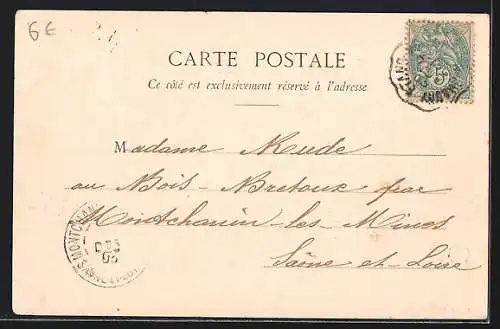 6 €
CARTE POSTALE
Ce côté est exclusivement réservé à l'adresse
Madame Mude
au Bois-Bretoux par
Montchanin-les-Mines
Saône et Loire
MONTCHANIN
DEC
05
SAONE